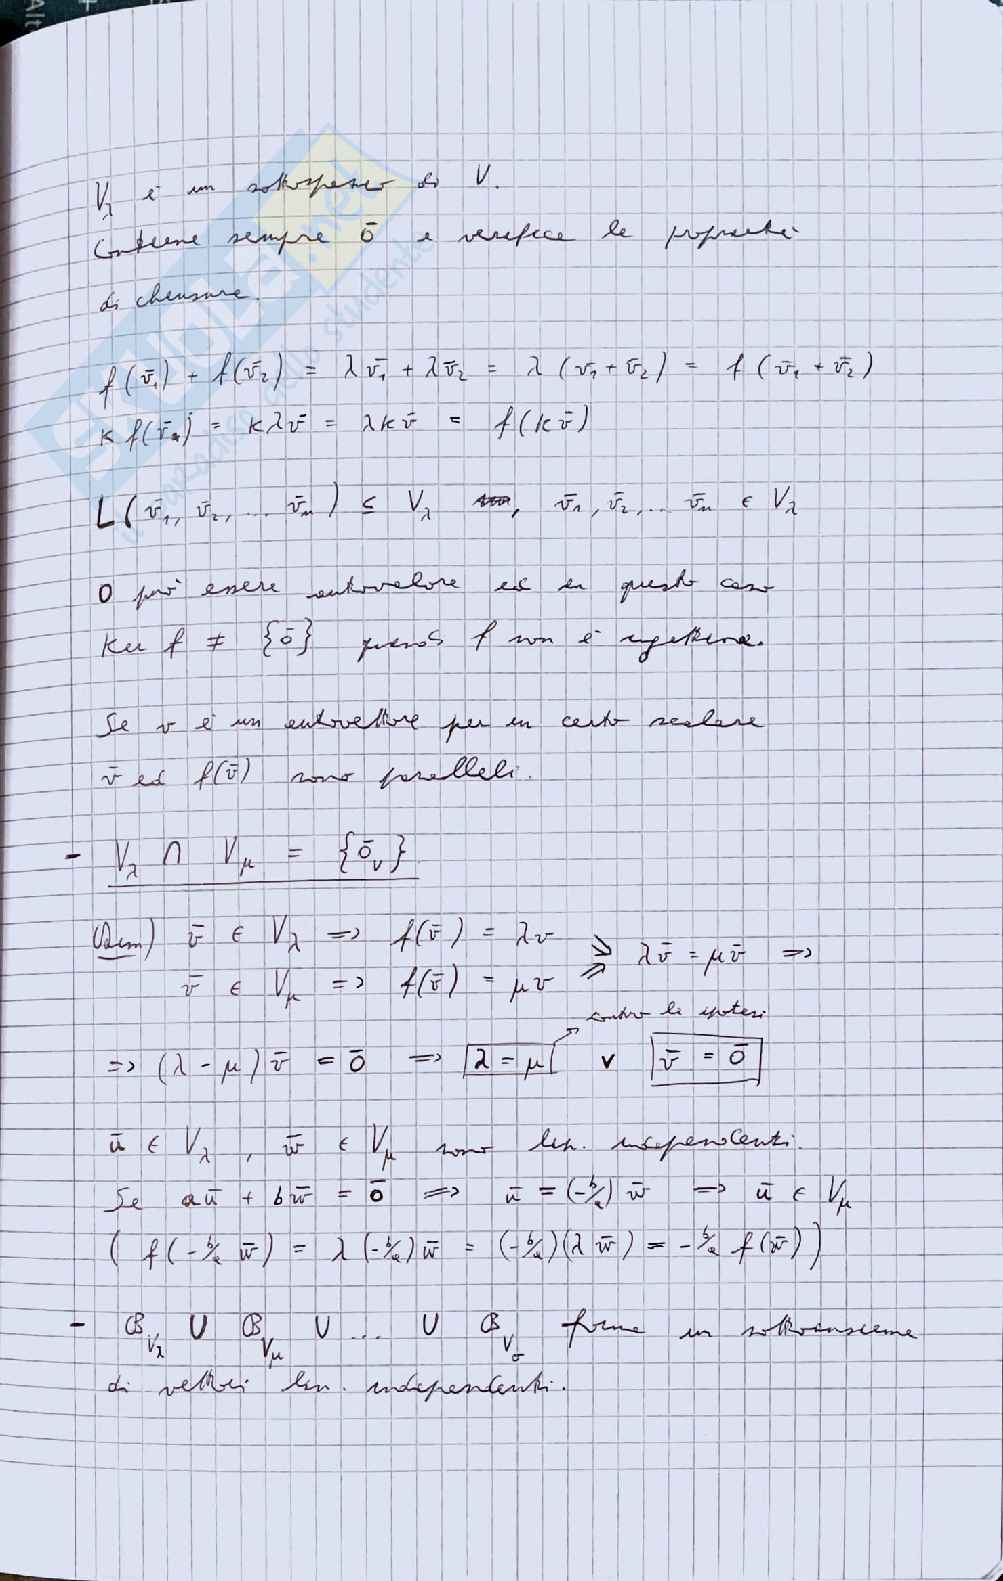 Alt
SKUOLA.net
V_λ è un sottospazio di V.
Contiene sempre ō e verifica le proprietà
di chiusura.
f(v̄₁) + f(v̄₂) = λv̄₁ + λv̄₂ = λ(v̄₁ + v̄₂) = f(v̄₁ + v̄₂)
K f(v̄) = Kλv̄ = λKv̄ = f(Kv̄)
L(v̄₁, v̄₂, ... v̄ₙ) ⊆ V_λ , v̄₁, v̄₂, ... v̄ₙ ∈ V_λ
0 può essere autovalore ed in questo caso
Ker f ≠ {ō} quindi f non è iniettiva.
Se v è un autovettore per un certo scalare
v̄ ed f(v̄) sono paralleli.
- V_λ ∩ V_μ = {ō_V}
Dim) v̄ ∈ V_λ => f(v̄) = λv
v̄ ∈ V_μ => f(v̄) = μv => λv̄ = μv̄ =>
contro le ipotesi
=> (λ - μ)v̄ = ō => λ = μ v v̄ = ō
ū ∈ V_λ , w̄ ∈ V_μ sono lin. indipendenti.
Se aū + bw̄ = ō => ū = (-b/a) w̄ => ū ∈ V_μ
(f(-b/a w̄) = λ(-b/a)w̄ = (-b/a)(λw̄) = -b/a f(w̄))
- B_{V_λ} ∪ B_{V_μ} ∪ ... ∪ B_{V_σ} forma un sottoinsieme
di vettori lin. indipendenti.